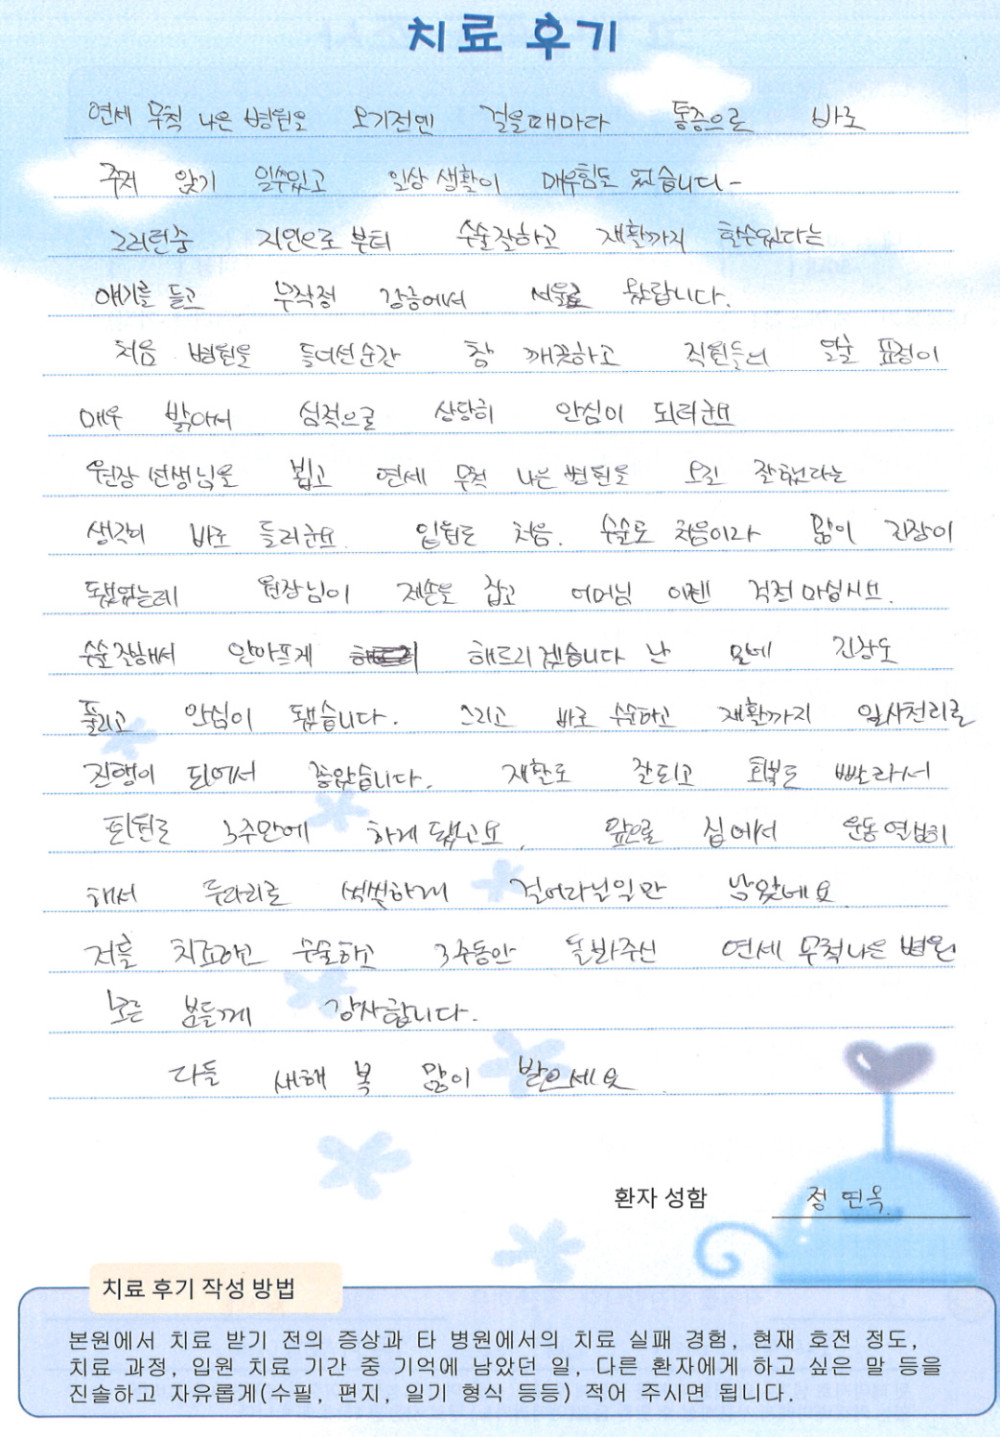 치료 후기
연세 무척 나은 병원을 오기전엔 걸을때마다 통증으로 바로
주저 앉기 일수있고 일상 생활이 매우힘도 었습니다-
그러런중 지인으로 부터 수술잘하고 재활까지 할수있다는
얘기를 듣고 무작정 강릉에서 서울로 왔답니다.
처음 병원을 들어선순간 참 깨끗하고 직원들의 얼굴 표정이
매우 밝아서 심적으로 상당히 안심이 되러군요
원장 선생님을 뵙고 연세 무척 나은 병원을 오길 잘했다는
생각이 바로 들러군요. 입원도 처음. 수술도 처음이라 많이 긴장이
됐었는데 원장님이 제손을 잡고 어머님 이젠 걱정 마십시요.
수술 잘해서 안아프게 해드리겠습니다 난 말에 긴장도
풀리고 안심이 됐습니다. 그리고 바로 수술하고 재활까지 일사천리로
진행이 되어서 좋았습니다. 재활도 잘되고 회복도 빨라서
퇴원도 3주만에 하게 됐고요, 앞으로 집에서 운동 열심히
해서 두다리로 씩씩하게 걸어다닐일만 남았네요.
저를 치료하고 수술하고 3주동안 돌봐주신 연세 무척나은 병원
모든 분들께 감사합니다.
다들 새해 복 많이 받으세요
환자 성함 정연옥
치료 후기 작성 방법
본원에서 치료 받기 전의 증상과 타 병원에서의 치료 실패 경험, 현재 호전 정도,
치료 과정, 입원 치료 기간 중 기억에 남았던 일, 다른 환자에게 하고 싶은 말 등을
진솔하고 자유롭게(수필, 편지, 일기 형식 등등) 적어 주시면 됩니다.